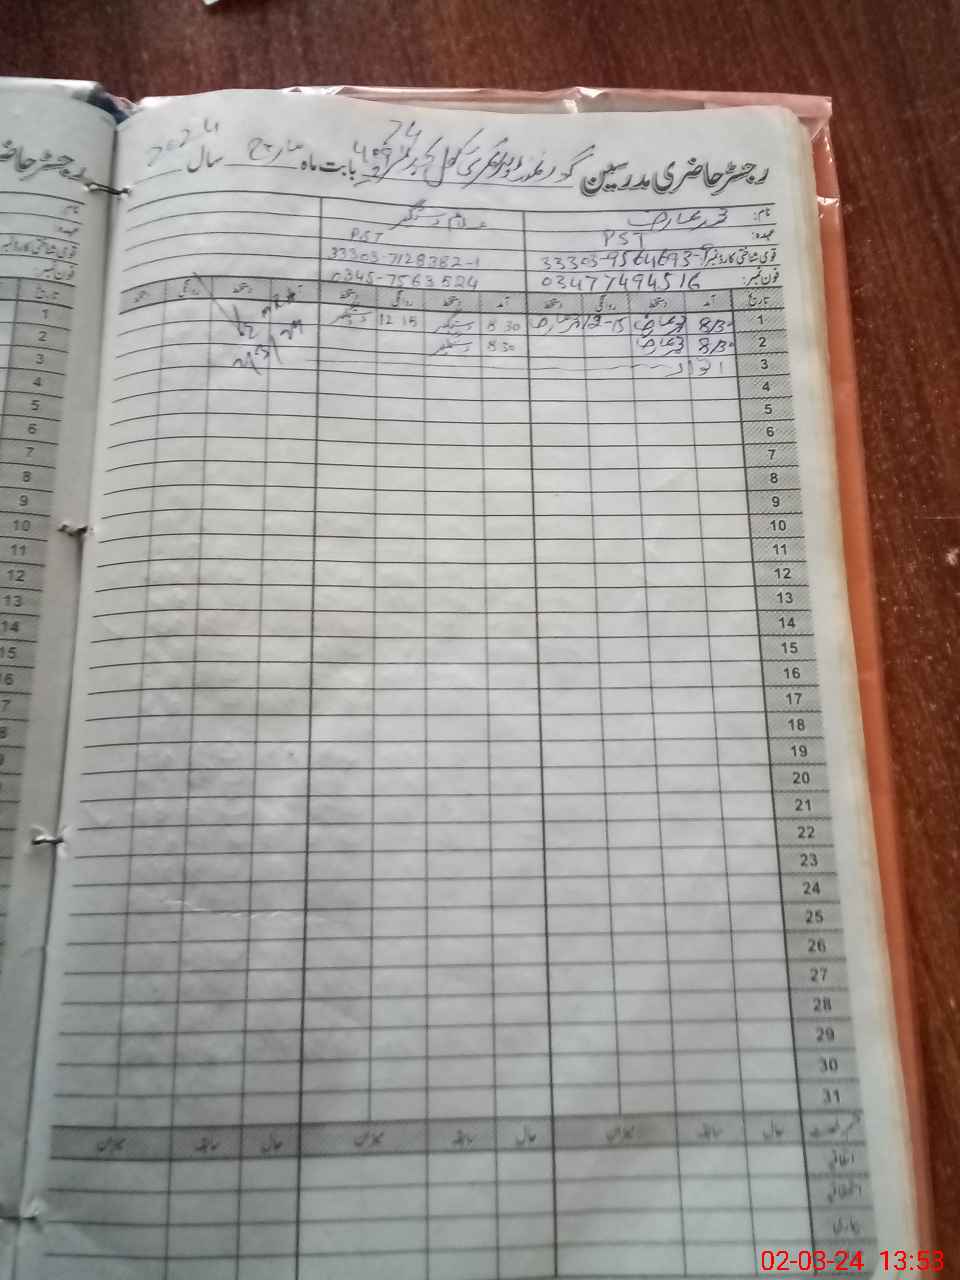 رجسٹر حاضری مدرسین گورنمنٹ بوائز پرائمری سکول بابت ماہ مارچ سال 2024
نام: محمد عارف غلام دستگیر
عہدہ: PST PST
قومی شناختی کارڈ نمبر 33303-9564693-9 33303-7128382-1
فون نمبر: 03477494516 0345-7563524
تاریخ آمد دستخط روانگی دستخط آمد دستخط روانگی دستخط آمد دستخط روانگی دستخط
1 8/30 محمد عارف 12-15 محمد عارف 8 30 دستگیر 12 15 دستگیر
2 8/30 محمد عارف 8 30 دستگیر
3 اتوار
4
5
6
7
8
9
10
11
12
13
14
15
16
17
18
19
20
21
22
23
24
25
26
27
28
29
30
31
قسم رخصت حال سابقہ میزان حال سابقہ میزان حال سابقہ میزان
اتفاقیہ
استحقاقیہ
بیماری
رجسٹر حاضری
نام:
عہدہ:
قومی شناختی کارڈ نمبر
فون نمبر:
تاریخ
1
2
3
4
5
6
7
8
9
10
11
12
13
14
15
02-03-24 13:53